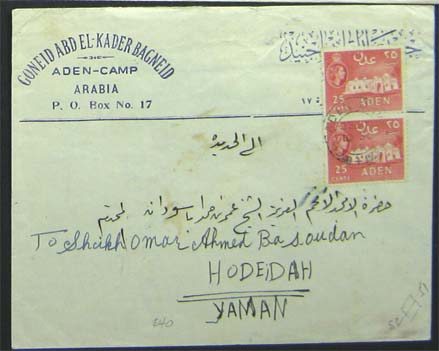 GONEID ABD EL-KADER BAGNEID
ADEN-CAMP
ARABIA
P. O. BOX No. 17
٢٥ عدن
25 CENTS ADEN
٢٥ عدن
25 CENTS ADEN
الى الحديده
حضرة الأمجد الأفخم العزيز الشيخ عمر احمد باسودان المحترم
To Sheikh Omar Ahmed Ba Soudan
HODEIDAH
YAMAN